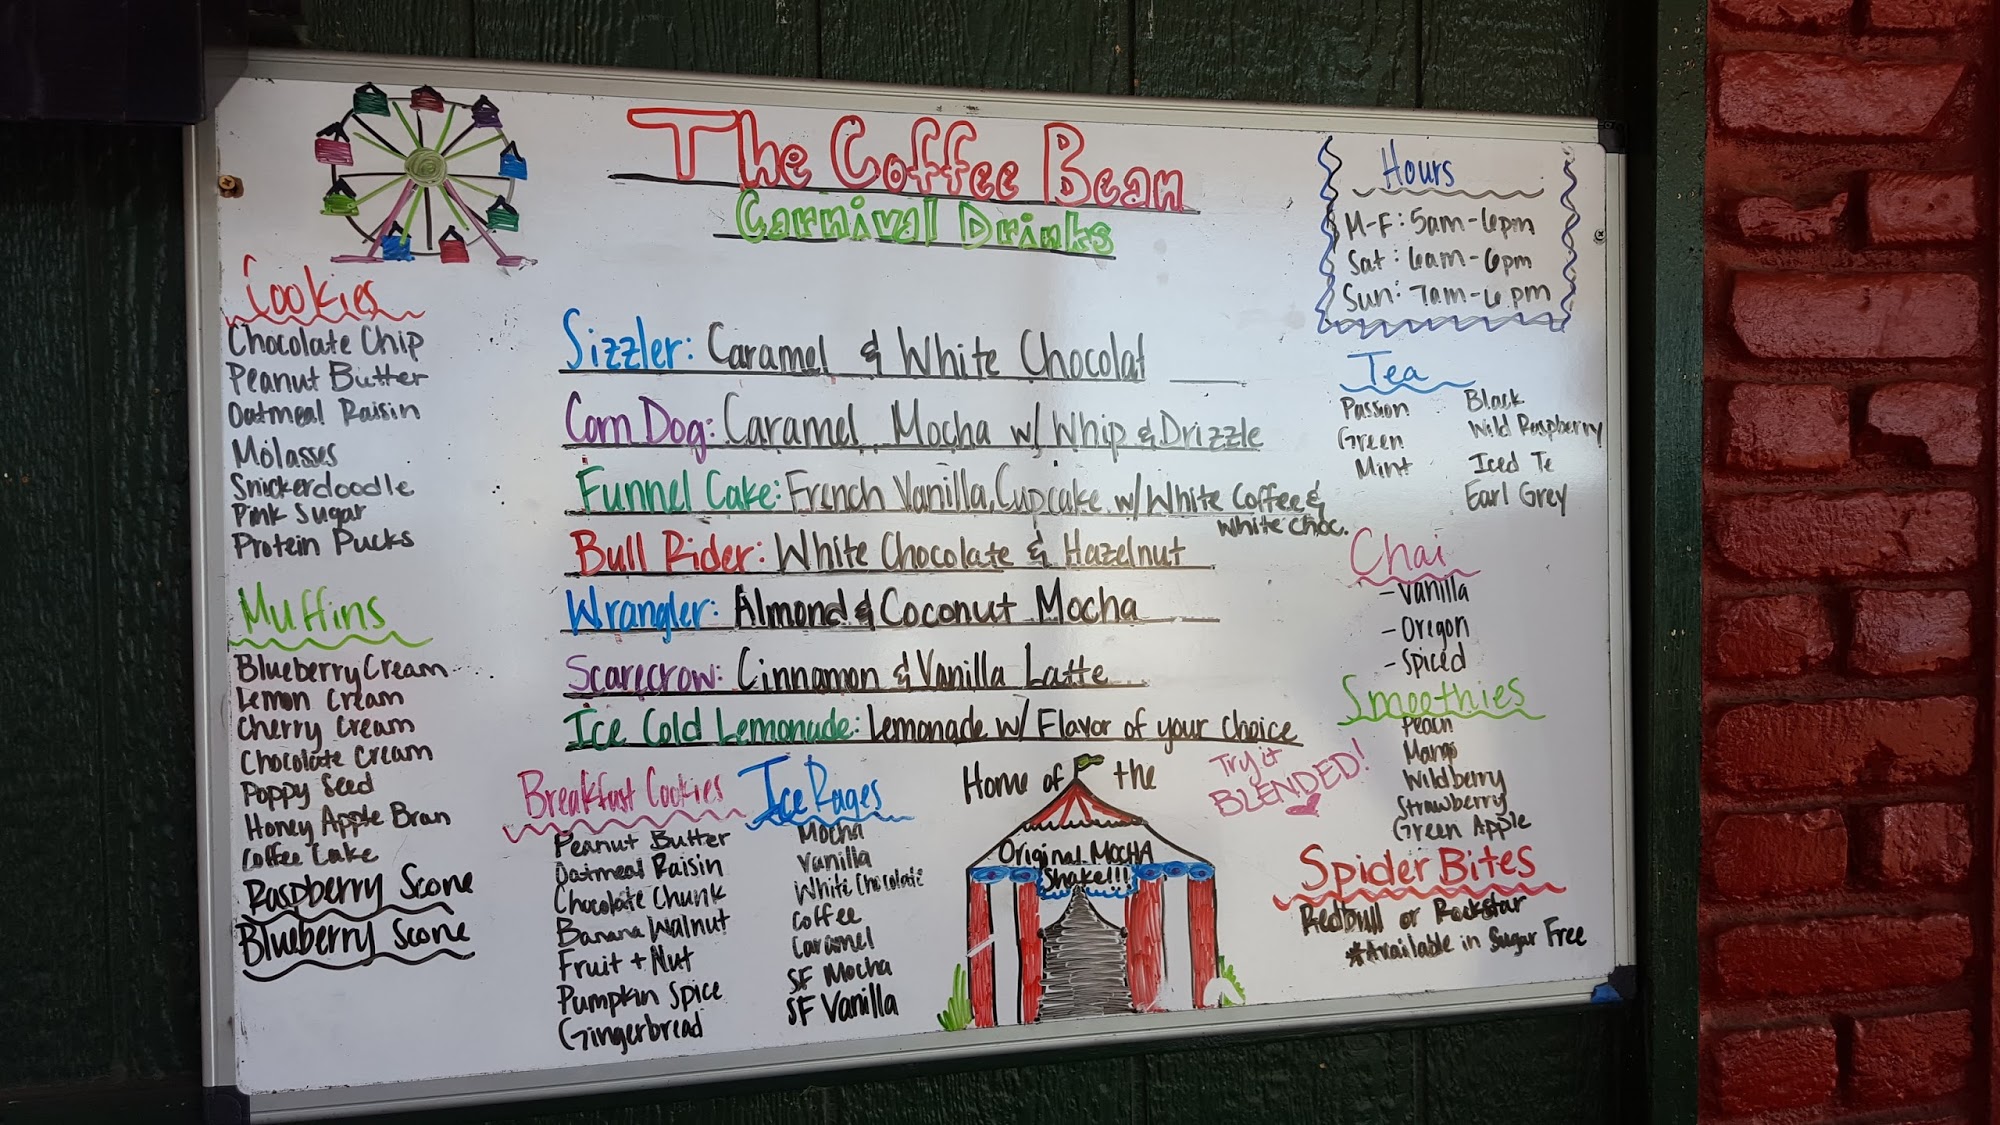 The Coffee Bean
Carnival Drinks
Hours
M-F: 5am-6pm
Sat: 6am-6pm
Sun: 7am-6pm
Cookies
Chocolate Chip
Peanut Butter
Oatmeal Raisin
Molasses
Snickerdoodle
Pink Sugar
Protein Pucks
Muffins
Blueberry Cream
Lemon Cream
Cherry Cream
Chocolate Cream
Poppy Seed
Honey Apple Bran
Coffee Cake
Raspberry Scone
Blueberry Scone
Sizzler: Caramel & White Chocolat
Corn Dog: Caramel, Mocha w/ Whip & Drizzle
Funnel Cake: French Vanilla, Cupcake w/ White Coffee &
White Choc.
Bull Rider: White Chocolate & Hazelnut
Wrangler: Almond & Coconut Mocha
Scarecrow: Cinnamon & Vanilla Latte
Ice Cold Lemonade: Lemonade w/ Flavor of your choice
Try it
BLENDED!
Breakfast Cookies
Peanut Butter
Oatmeal Raisin
Chocolate Chunk
Banana Walnut
Fruit + Nut
Pumpkin Spice
Gingerbread
Ice Rages
Mocha
Vanilla
White Chocolate
Coffee
Caramel
SF Mocha
SF Vanilla
Home of the
Original MocHA
Shake!!!
Tea
Passion
Green
Mint
Black
Wild Raspberry
Iced Te
Earl Grey
Chai
-Vanilla
-Oregon
-Spiced
Smoothies
Peach
Mango
Wildberry
Strawberry
Green Apple
Spider Bites
Redbull or Rockstar
*Available in Sugar Free